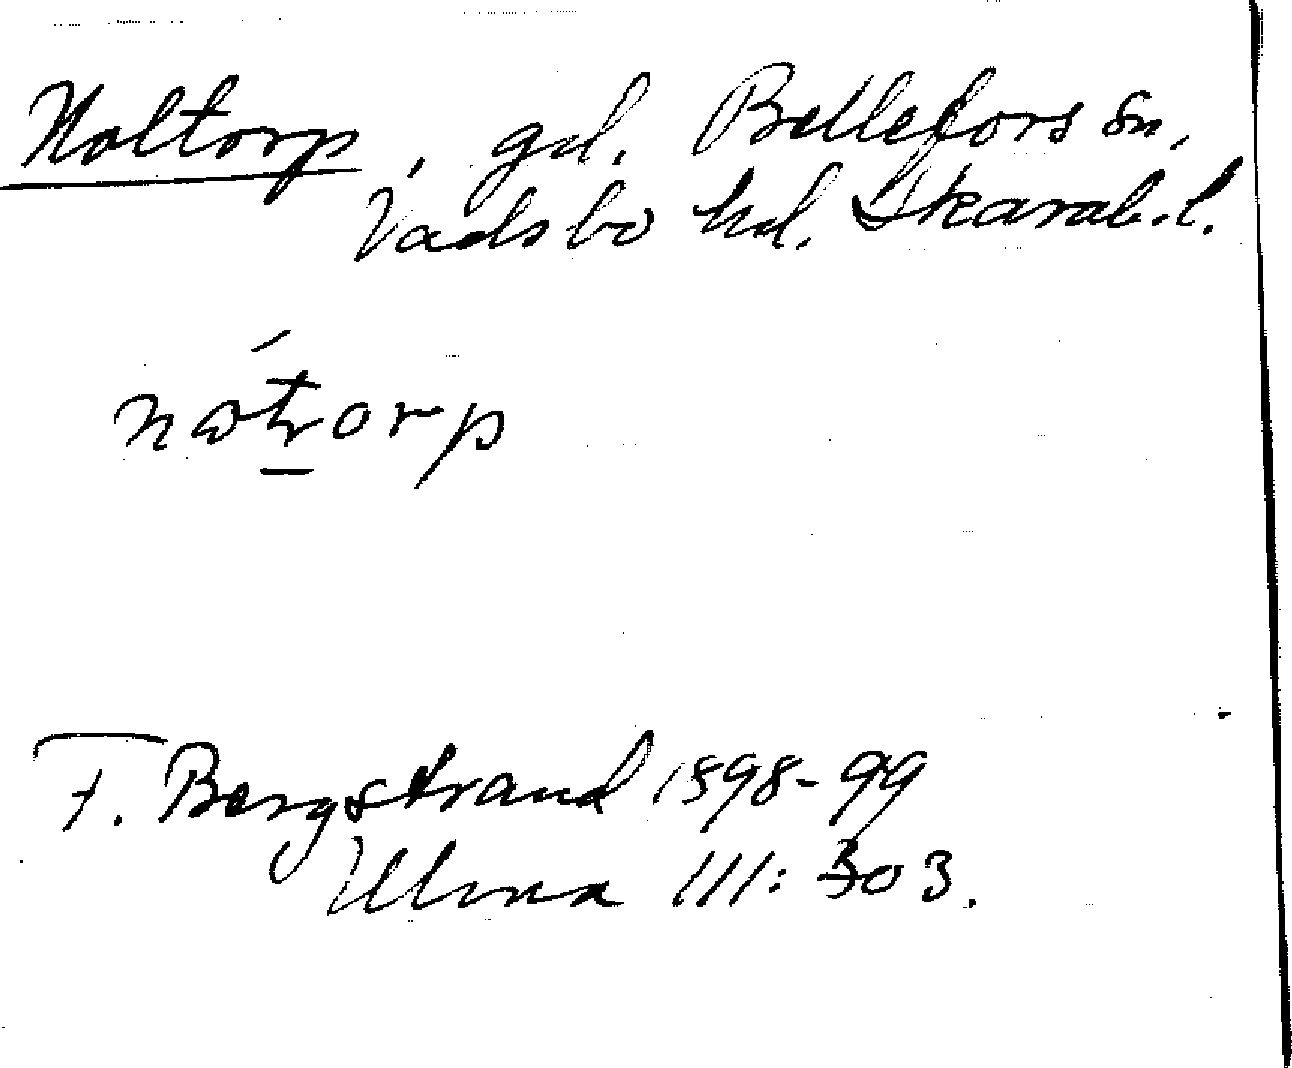 Noltorp, gd. Bellefors sn,
Vadsbo hd. Skarab. l.
nɷtorp
F. Bergstrand 1898-99
Ulma 111: 303.